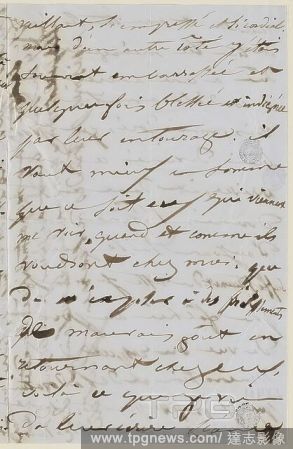 mais d'un autre côté j'étais
souvent embarrassée et
quelquefois blessée et indignée
par leur entourage. il
vaut mieux en somme
que ce soit eux qui viennent
me voir, quand et comme ils
voudront chez moi, que
de m'exposer à des
de mauvais goût en
retournant chez eux,
voilà ce que
de leur
TPG
www.tpgnews.com / 達志影像